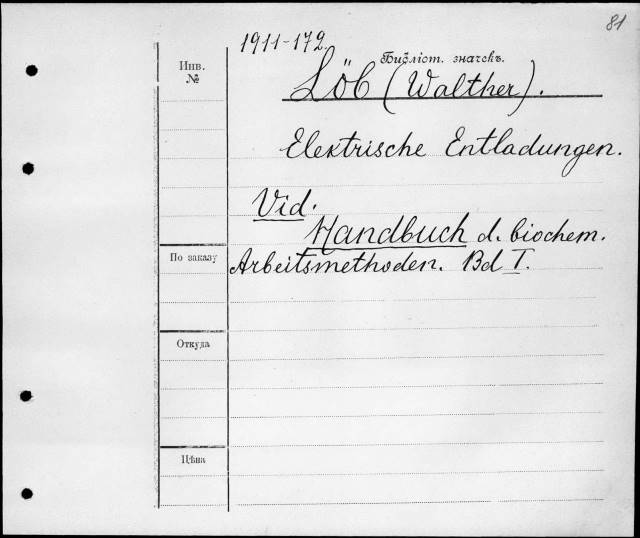 81
1911-172.
Инв.
№
Библіот. значекъ.
Löb (Walther).
Elektrische Entladungen.
Vid.
Handbuch d. biochem.
По заказу
Arbeitsmethoden. Bd I.
Откуда
Цѣна